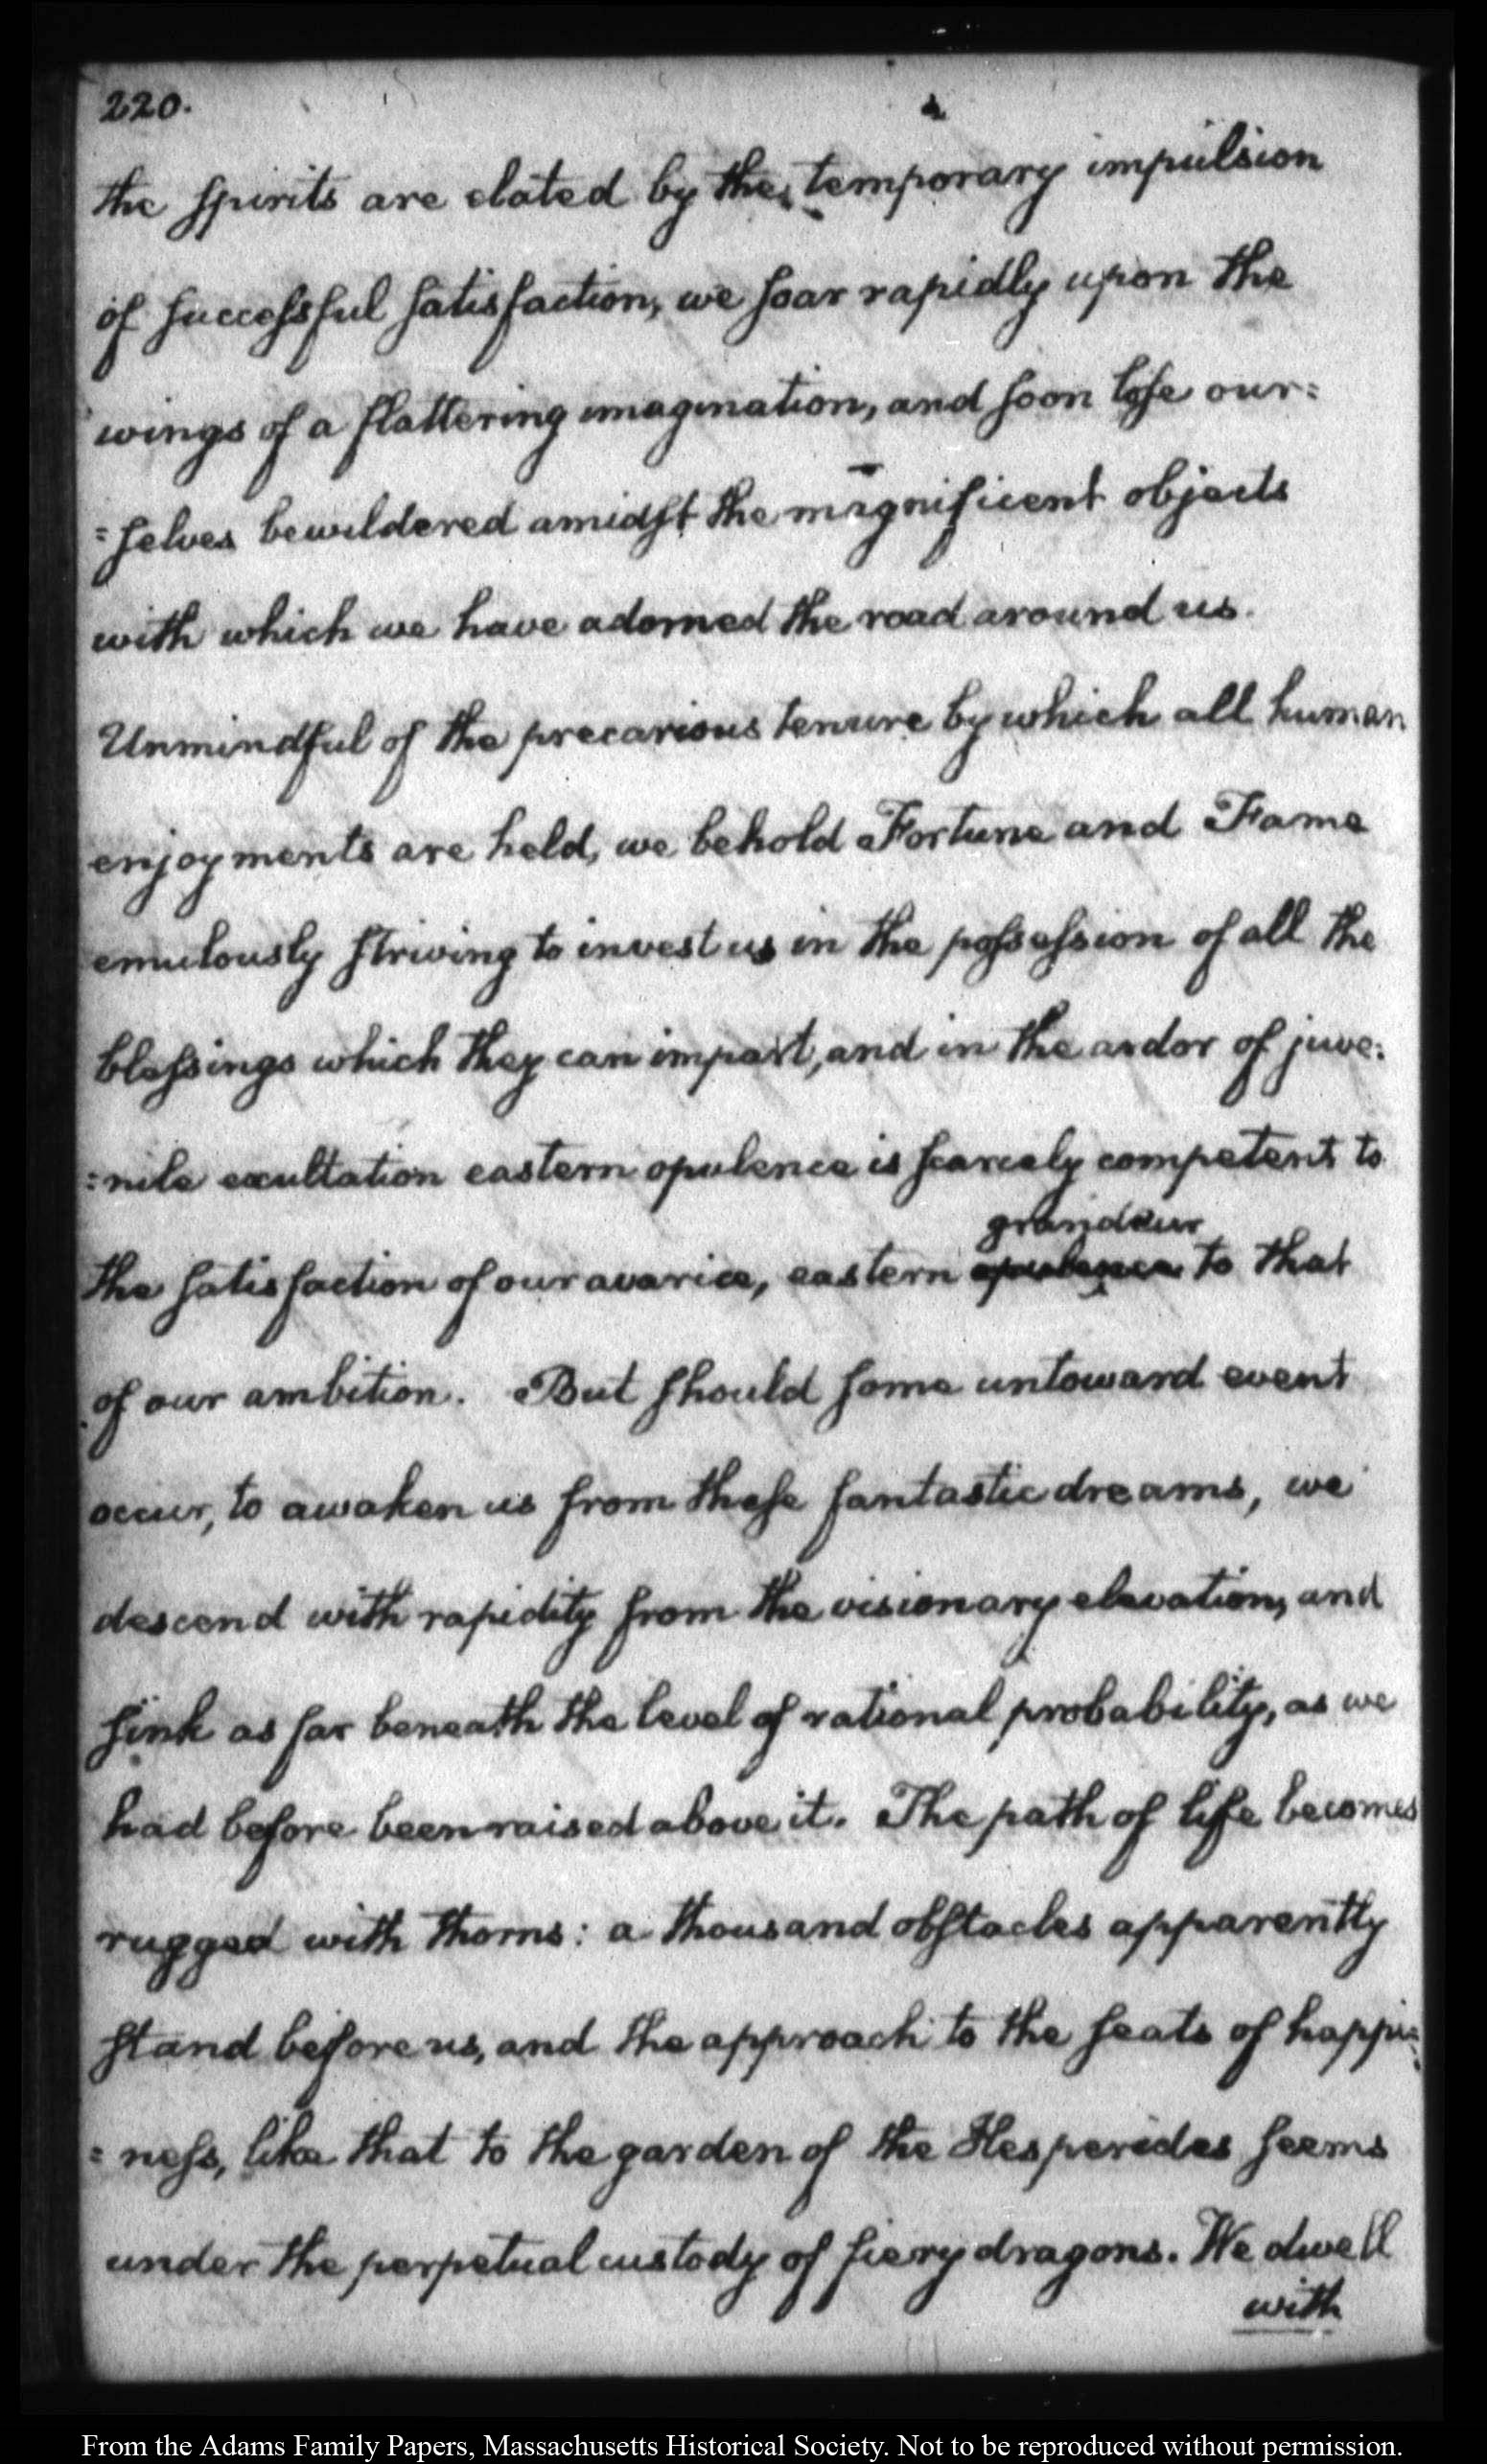 220.
the spirits are elated by the temporary impulsion
of successful satisfaction, we soar rapidly upon the
wings of a flattering imagination, and soon lose our=
=selves bewildered amidst the magnificent objects
with which we have adorned the road around us.
Unmindful of the precarious tenure by which all human
enjoyments are held, we behold Fortune and Fame
emulously striving to invest us in the possession of all the
blessings which they can impart, and in the ardor of juve=
=nile exultation eastern opulence is scarcely competent to
grandeur
the satisfaction of our avarice, eastern opulence to that
of our ambition. But should some untoward event
occur, to awaken us from these fantastic dreams, we
descend with rapidity from the visionary elevation, and
sink as far beneath the level of rational probability, as we
had before been raised above it. The path of life becomes
rugged with thorns: a thousand obstacles apparently
stand before us, and the approach to the seats of happi=
=ness, like that to the garden of the Hesperides seems
under the perpetual custody of fiery dragons. We dwell
with
From the Adams Family Papers, Massachusetts Historical Society. Not to be reproduced without permission.